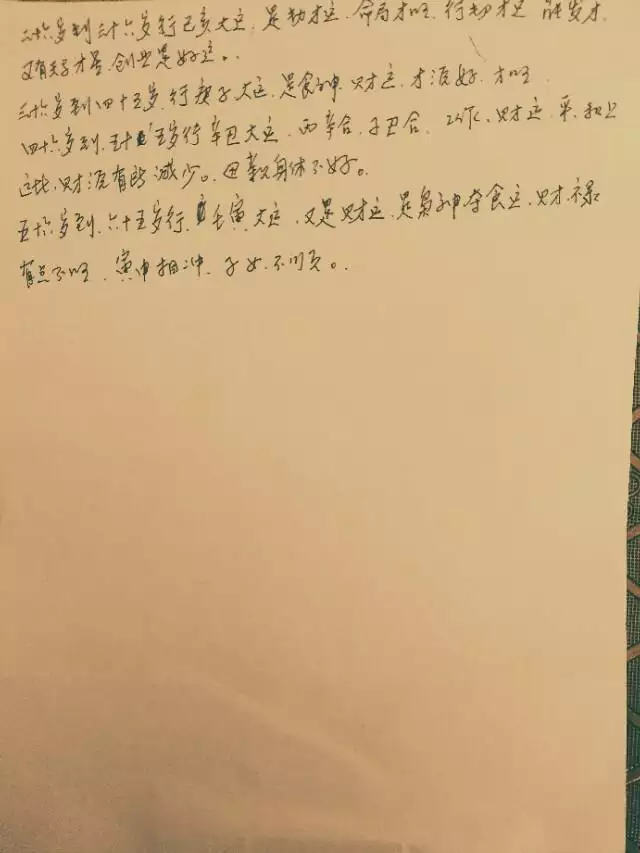 二十六岁到三十六岁行己亥大运,是劫才运,命局才旺,行劫才运 能发才
又有天才星,创业是好运。
三十六岁到四十五岁,行庚子大运,是食神 财运,才源好,才旺
四十六岁到,五十五岁行辛丑大运,丙辛合,子丑合,财运,平,和上
这比,财源有所减少。母亲身体不好。
五十六岁到,六十五岁行,壬寅大运,又是财运,是枭神夺食运,财禄
有点不旺,寅申相冲,子女不顺。